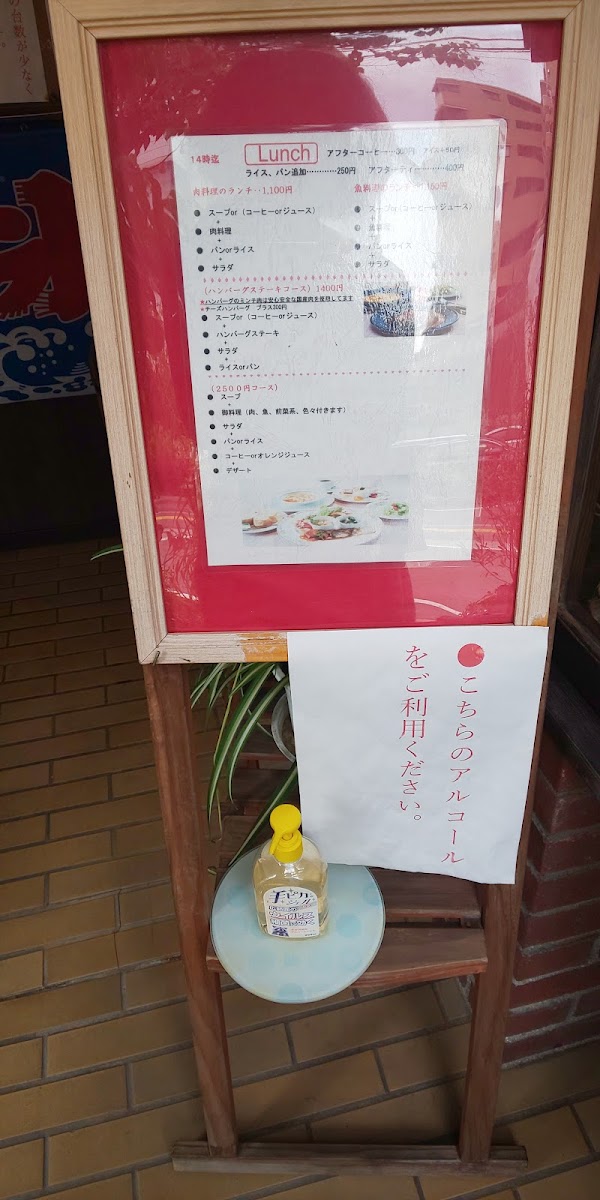 の台数が少なく
14時迄
Lunch
アフターコーヒー…300円 アイス+50円
ライス、パン追加…………250円 アフターティー…………400円
肉料理のランチ‥1,100円
● スープor（コーヒーorジュース）
+
● 肉料理
+
● パンorライス
+
● サラダ
● スープor（コーヒーorジュース）
+
● パンorライス
+
● サラダ
（ハンバーグステーキコース）1400円
★ハンバーグのミンチ肉は安心安全な国産肉を使用してます
★チーズハンバーグ プラス200円
● スープor（コーヒーorジュース）
+
● ハンバーグステーキ
+
● サラダ
+
● ライスorパン
（2500円コース）
● スープ
+
● 御料理（肉、魚、前菜系、色々付きます）
● サラダ
+
● パンorライス
+
● コーヒーorオレンジジュース
+
● デザート
●こちらのアルコール
をご利用ください。
手ピカ
ジェル